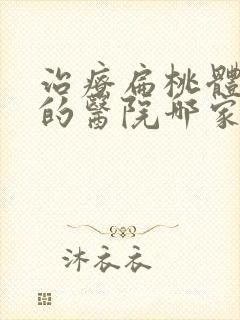 治療扁桃體
的醫院哪家
沐衣衣